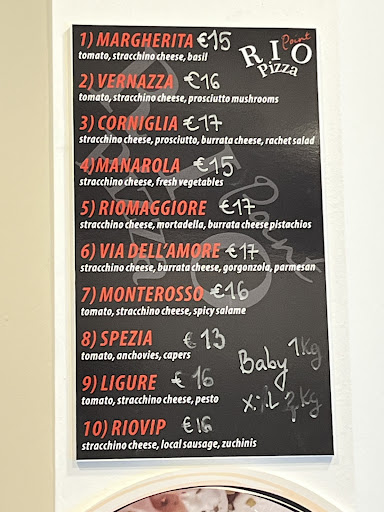 1) MARGHERITA €15
tomato, stracchino cheese, basil
RIO
Point
Pizza
2) VERNAZZA €16
tomato, stracchino cheese, prosciutto mushrooms
3) CORNIGLIA €17
stracchino cheese, prosciutto, burrata cheese, rachet salad
4)MANAROLA €15
stracchino cheese, fresh vegetables
5) RIOMAGGIORE €17
stracchino cheese, mortadella, burrata cheese pistachios
6) VIA DELL'AMORE €17
stracchino cheese, burrata cheese, gorgonzola, parmesan
7) MONTEROSSO €16
tomato, stracchino cheese, spicy salame
8) SPEZIA € 13
tomato, anchovies, capers
Baby 1Kg
9) LIGURE € 16
tomato, stracchino cheese, pesto
Kg
10) RIOVIP €16
stracchino cheese, local sausage, zuchinis
Point
Pizza
RIO